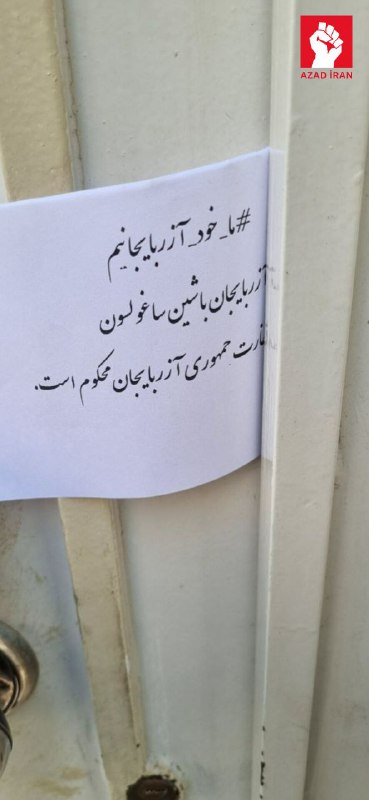 AZAD İRAN
#ما_خود_آذربایجانیم
آذربایجان باشین ساغ اولسون
جمهوری آذربایجان محکوم است.